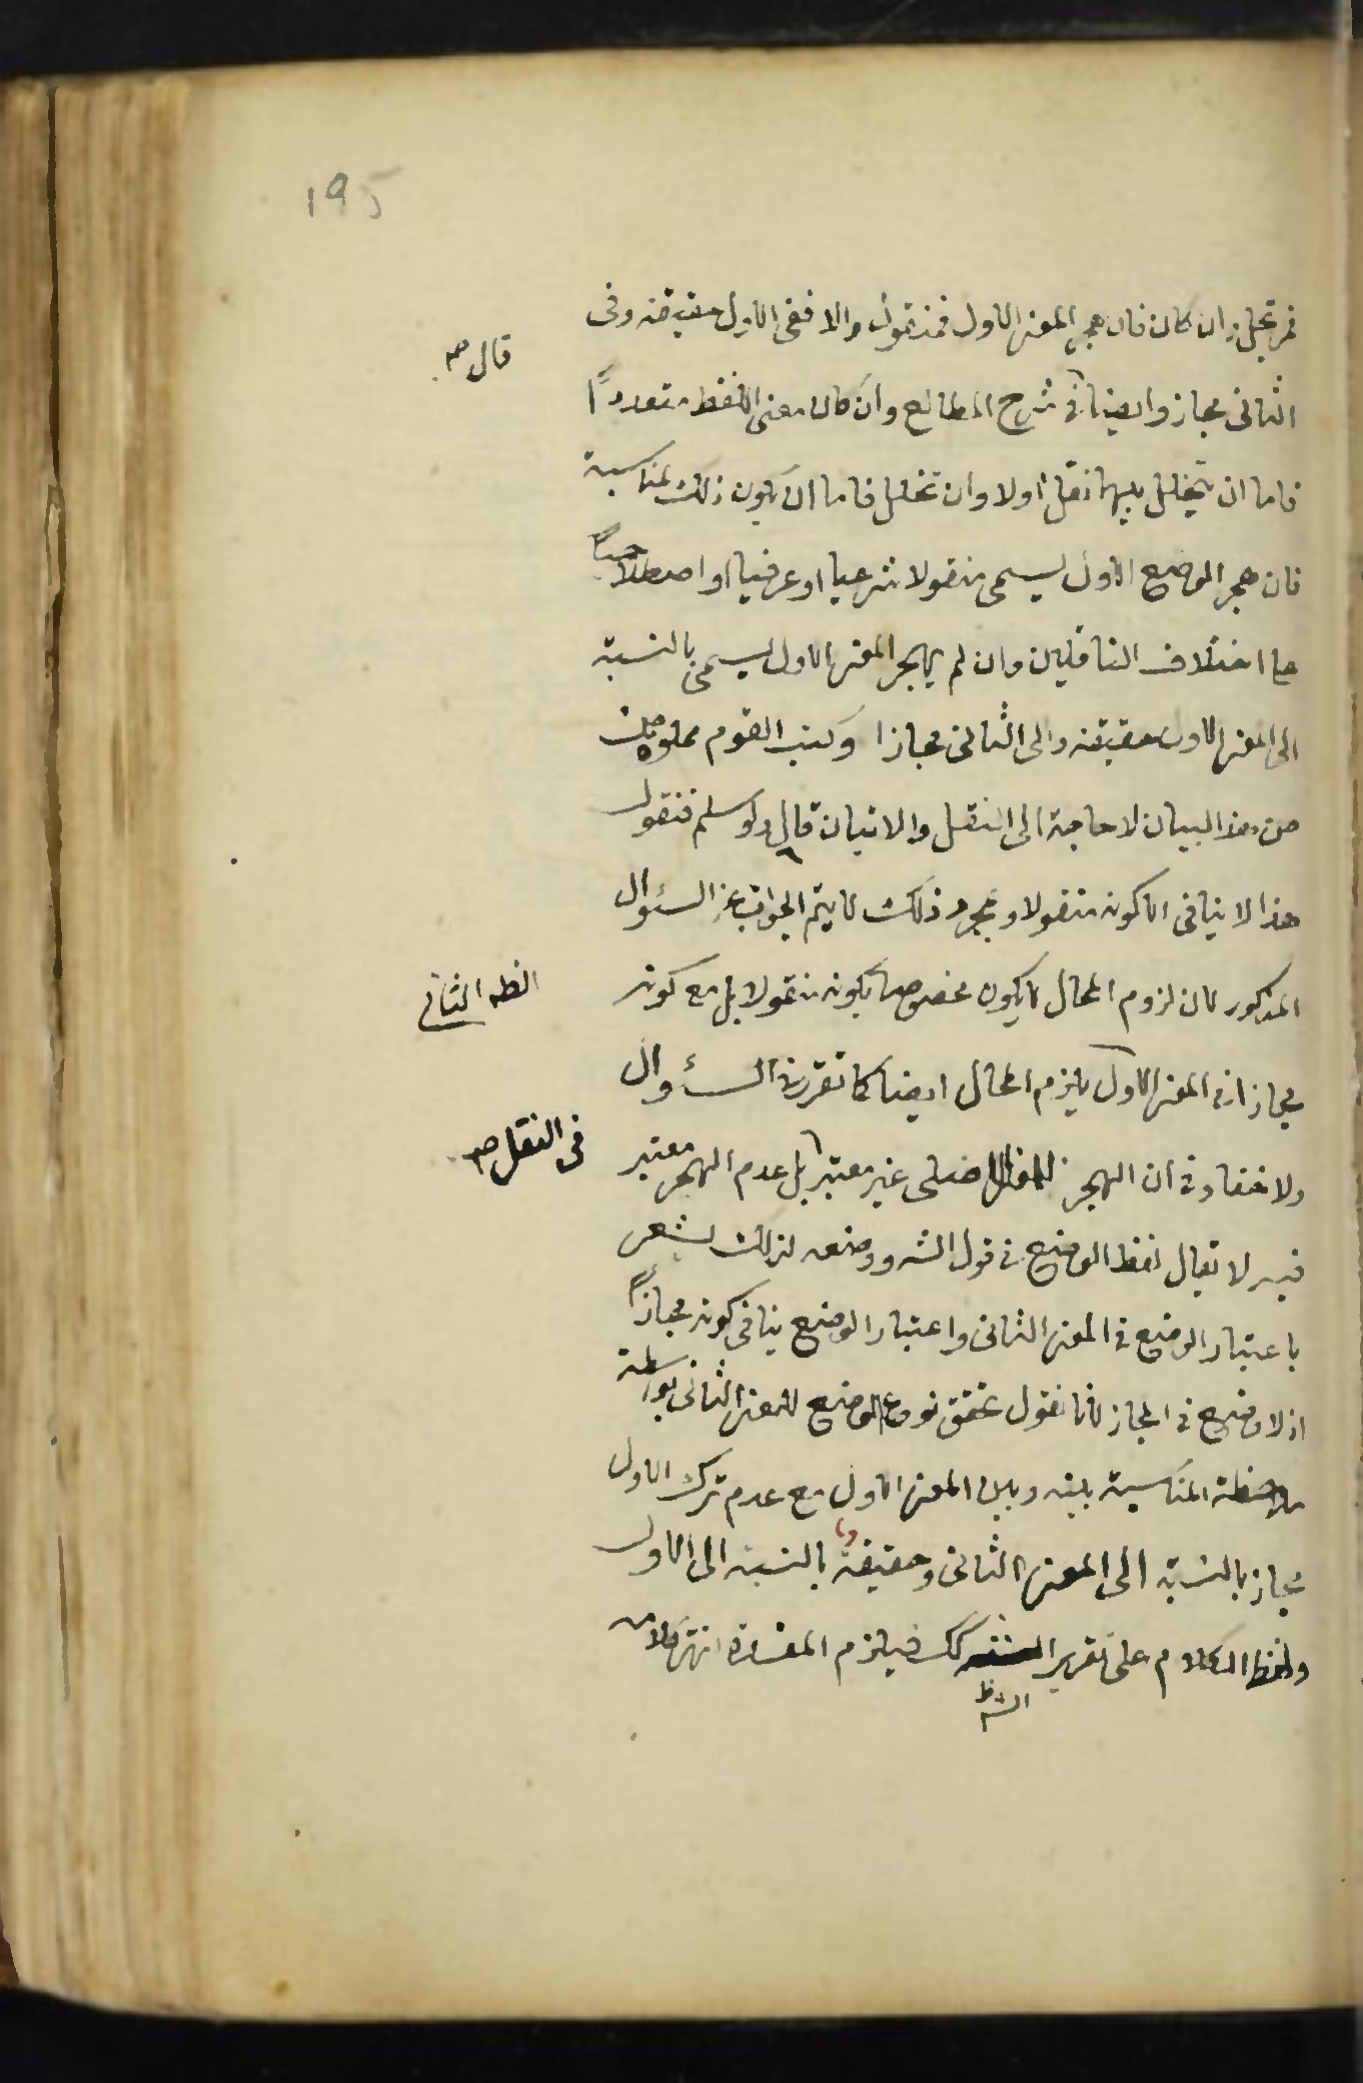 195
فمرتجل وان كان فان هجر المعنى الاول فمنقول والا ففى الاول حقيقة وفى
قال صح
الثانى مجاز وايضا فى شرح المطالع وان كان معنى اللفظ متعددًا
فاما ان يتخلل بينهما نقل اولا وان تخلل فاما ان يكون ذلك لمناسبة
فان هجر الوضع الاول يسمى منقولا شرعيا او عرفيا او اصطلاحيًا
على اختلاف الناقلين وان لم يهجر المعنى الاول يسمى بالنسبة
الى المعنى الاول حقيقة والى الثانى مجازا وكتب القوم مملوة
من هذا البيان لا حاجة الى النقل والاتيان قال ولو سلم فنقول
هذا لا ينافى الا كونه منقولا وبمجرد ذلك لا يتم الجواب عن السئوال
المذكور لان لزوم المحال لا يكون مخصوصا بكونه منقولا بل مع كونه
الثانى
مجازا فى المعنى الاول يلزم المحال ايضا كما تقرر فى السئوال
فى النقل صح
ولا خفاء فى ان الهجر غير معتبر بل عدم الهجر معتبر
فيه لا يقال لفظ الوضع فى قول الشه ووضعه لذلك يشعر
باعتبار الوضع فى المعنى الثانى واعتبار الوضع ينافى كونه مجازًا
اذ لا وضع فى المجاز لانا نقول تحقق نوع الوضع للمعنى الثانى بواسطة
ملاحظة المناسبة بينه وبين المعنى الاول مع عدم ترك الاول
مجاز بالنسبة الى المعنى الثانى وحقيقة بالنسبة الى الاول
ولفظ الكلام على تقرير كك فيلزم المفسدة انتهى كلامه